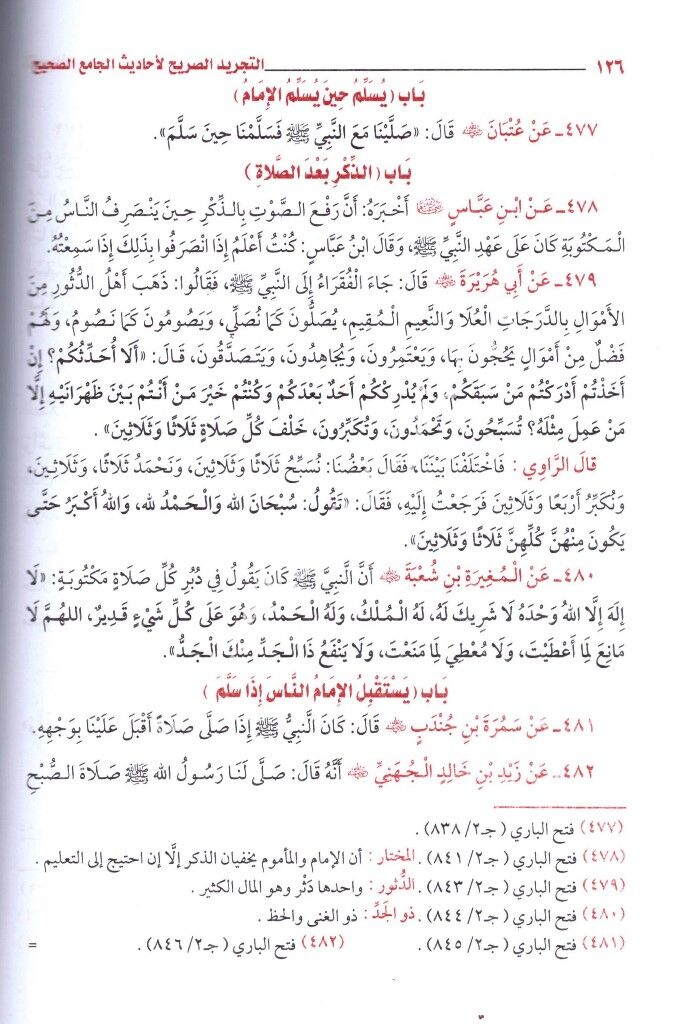 ١٢٦ التجريد الصريح لأحاديث الجامع الصحيح
بَاب (يُسَلِّمُ حِينَ يُسَلِّمُ الإِمَامُ)
٤٧٧ـ عَنْ عُتْبَانَ ﵁ قَالَ: «صَلَّيْنَا مَعَ النَّبِيِّ ﷺ فَسَلَّمْنَا حِينَ سَلَّمَ».
بَاب (الذِّكْرِ بَعْدَ الصَّلَاةِ)
٤٧٨ـ عَنْ ابْنِ عَبَّاسٍ ﵄ أَخْبَرَهُ: أَنَّ رَفْعَ الصَّوْتِ بِالذِّكْرِ حِينَ يَنْصَرِفُ النَّاسُ مِنَ
الْمَكْتُوبَةِ كَانَ عَلَى عَهْدِ النَّبِيِّ ﷺ، وَقَالَ ابْنُ عَبَّاسٍ: كُنْتُ أَعْلَمُ إِذَا انْصَرَفُوا بِذَلِكَ إِذَا سَمِعْتُهُ.
٤٧٩ـ عَنْ أَبِي هُرَيْرَةَ ﵁ قَالَ: جَاءَ الْفُقَرَاءُ إِلَى النَّبِيِّ ﷺ، فَقَالُوا: ذَهَبَ أَهْلُ الدُّثُورِ مِنَ
الأَمْوَالِ بِالدَّرَجَاتِ الْعُلَا وَالنَّعِيمِ الْمُقِيمِ، يُصَلُّونَ كَمَا نُصَلِّي، وَيَصُومُونَ كَمَا نَصُومُ، وَلَهُمْ
فَضْلٌ مِنْ أَمْوَالٍ يَحُجُّونَ بِهَا، وَيَعْتَمِرُونَ، وَيُجَاهِدُونَ، وَيَتَصَدَّقُونَ، قَالَ: «أَلَا أُحَدِّثُكُمْ؟ إِنْ
أَخَذْتُمْ أَدْرَكْتُمْ مَنْ سَبَقَكُمْ، وَلَمْ يُدْرِكْكُمْ أَحَدٌ بَعْدَكُمْ وَكُنْتُمْ خَيْرَ مَنْ أَنْتُمْ بَيْنَ ظَهْرَانَيْهِ إِلَّا
مَنْ عَمِلَ مِثْلَهُ؟ تُسَبِّحُونَ، وَتَحْمَدُونَ، وَتُكَبِّرُونَ، خَلْفَ كُلِّ صَلَاةٍ ثَلَاثًا وَثَلَاثِينَ».
قَالَ الرَّاوِي: فَاخْتَلَفْنَا بَيْنَنَا، فَقَالَ بَعْضُنَا: نُسَبِّحُ ثَلَاثًا وَثَلَاثِينَ، وَنَحْمَدُ ثَلَاثًا، وَثَلَاثِينَ،
وَنُكَبِّرُ أَرْبَعًا وَثَلَاثِينَ فَرَجَعْتُ إِلَيْهِ، فَقَالَ: «تَقُولُ: سُبْحَانَ اللهِ وَالْحَمْدُ لله، وَاللهُ أَكْبَرُ حَتَّى
يَكُونَ مِنْهُنَّ كُلِّهِنَّ ثَلَاثًا وَثَلَاثِينَ».
٤٨٠ـ عَنْ الْمُغِيرَةِ بْنِ شُعْبَةَ ﵁ أَنَّ النَّبِيَّ ﷺ كَانَ يَقُولُ فِي دُبُرِ كُلِّ صَلَاةٍ مَكْتُوبَةٍ: «لَا
إِلَهَ إِلَّا اللهُ وَحْدَهُ لَا شَرِيكَ لَهُ، لَهُ الْمُلْكُ، وَلَهُ الْحَمْدُ، وَهُوَ عَلَى كُلِّ شَيْءٍ قَدِيرٌ، اللهُمَّ لَا
مَانِعَ لِمَا أَعْطَيْتَ، وَلَا مُعْطِيَ لِمَا مَنَعْتَ، وَلَا يَنْفَعُ ذَا الْجَدِّ مِنْكَ الْجَدُّ».
بَاب (يَسْتَقْبِلُ الإِمَامُ النَّاسَ إِذَا سَلَّمَ)
٤٨١ـ عَنْ سَمُرَةَ بْنِ جُنْدَبٍ ﵁ قَالَ: كَانَ النَّبِيُّ ﷺ إِذَا صَلَّى صَلَاةً أَقْبَلَ عَلَيْنَا بِوَجْهِهِ.
٤٨٢ـ عَنْ زَيْدِ بْنِ خَالِدٍ الْجُهَنِيِّ ﵁ أَنَّهُ قَالَ: صَلَّى لَنَا رَسُولُ اللهِ ﷺ صَلَاةَ الصُّبْحِ
(٤٧٧) فتح الباري (جـ٢/ ٨٣٨).
(٤٧٨) فتح الباري (جـ٢/ ٨٤١). المختار: أن الإمام والمأموم يخفيان الذكر إلَّا إن احتيج إلى التعليم.
(٤٧٩) فتح الباري (جـ٢/ ٨٤٣). الدُّثور: واحدها دَثْر وهو المال الكثير.
(٤٨٠) فتح الباري (جـ٢/ ٨٤٤). ذو الجَدِّ: ذو الغنى والحظ.
(٤٨١) فتح الباري (جـ٢/ ٨٤٥). (٤٨٢) فتح الباري (جـ٢/ ٨٤٦). =